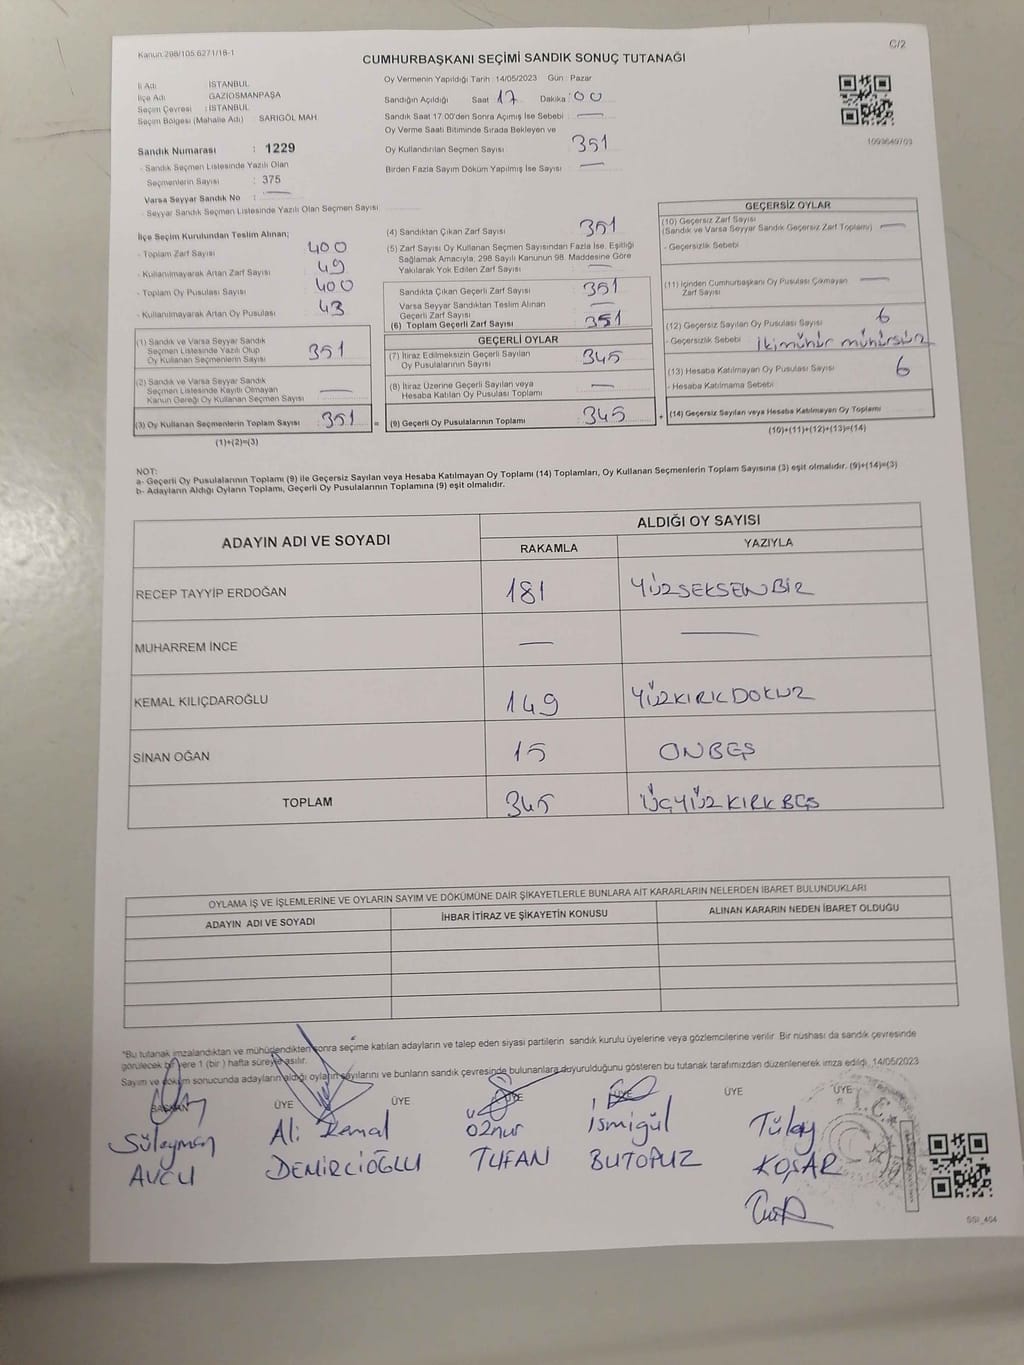 Kanun:298/105.6271/18-1
C/2
CUMHURBAŞKANI SEÇİMİ SANDIK SONUÇ TUTANAĞI
İl Adı : İSTANBUL
İlçe Adı GAZİOSMANPAŞA
Seçim Çevresi : İSTANBUL
Seçim Bölgesi (Mahalle Adı) : SARIGÖL MAH.
Sandık Numarası : 1229
- Sandık Seçmen Listesinde Yazılı Olan
Seçmenlerin Sayısı : 375
Varsa Seyyar Sandık No : —
- Seyyar Sandık Seçmen Listesinde Yazılı Olan Seçmen Sayısı
Oy Vermenin Yapıldığı Tarih : 14/05/2023 Gün : Pazar
Sandığın Açıldığı Saat 17 Dakika : 00
Sandık Saat 17.00'den Sonra Açımış İse Sebebi —
Oy Verme Saati Bitiminde Sırada Bekleyen ve
Oy Kullandırılan Seçmen Sayısı 351
Birden Fazla Sayım Döküm Yapılmış İse Sayısı —
1093649703
İlçe Seçim Kurulundan Teslim Alınan;
- Toplam Zarf Sayısı 400
- Kullanılmayarak Artan Zarf Sayısı 49
- Toplam Oy Pusulası Sayısı 400
- Kullanılmayarak Artan Oy Pusulası 43
(1) Sandık ve Varsa Seyyar Sandık
Seçmen Listesinde Yazılı Olup
Oy Kullanan Seçmenlerin Sayısı 351
(2) Sandık ve Varsa Seyyar Sandık
Seçmen Listesinde Kayıtlı Olmayan
Kanun Gereği Oy Kullanan Seçmen Sayısı —
(3) Oy Kullanan Seçmenlerin Toplam Sayısı 351 =
(1)+(2)=(3)
(4) Sandıktan Çıkan Zarf Sayısı 351
(5) Zarf Sayısı Oy Kullanan Seçmen Sayısından Fazla İse, Eşitliği
Sağlamak Amacıyla, 298 Sayılı Kanunun 98. Maddesine Göre
Yakılarak Yok Edilen Zarf Sayısı —
Sandıkta Çıkan Geçerli Zarf Sayısı 351
Varsa Seyyar Sandıktan Teslim Alınan
Geçerli Zarf Sayısı —
(6) Toplam Geçerli Zarf Sayısı 351
GEÇERLİ OYLAR
(7) İtiraz Edilmeksizin Geçerli Sayılan
Oy Pusulalarının Sayısı 345
(8) İtiraz Üzerine Geçerli Sayılan veya
Hesaba Katılan Oy Pusulası Toplamı —
(9) Geçerli Oy Pusulalarının Toplamı 345 +
GEÇERSİZ OYLAR
(10) Geçersiz Zarf Sayısı
(Sandık ve Varsa Seyyar Sandık Geçersiz Zarf Toplamı) —
- Geçersizlik Sebebi
(11) İçinden Cumhurbaşkanı Oy Pusulası Çıkmayan
Zarf Sayısı —
(12) Geçersiz Sayılan Oy Pusulası Sayısı 6
- Geçersizlik Sebebi iki mühür mühürsüz
(13) Hesaba Katılmayan Oy Pusulası Sayısı 6
- Hesaba Katılmama Sebebi
(14) Geçersiz Sayılan veya Hesaba Katılmayan Oy Toplamı
(10)+(11)+(12)+(13)=(14)
NOT:
a- Geçerli Oy Pusulalarının Toplamı (9) ile Geçersiz Sayılan veya Hesaba Katılmayan Oy Toplamı (14) Toplamları, Oy Kullanan Seçmenlerin Toplam Sayısına (3) eşit olmalıdır. (9)+(14)=(3)
b- Adayların Aldığı Oyların Toplamı, Geçerli Oy Pusulalarının Toplamına (9) eşit olmalıdır.
ADAYIN ADI VE SOYADI
ALDIĞI OY SAYISI
RAKAMLA YAZIYLA
RECEP TAYYİP ERDOĞAN 181 YÜZSEKSENBİR
MUHARREM İNCE — —
KEMAL KILIÇDAROĞLU 149 YÜZKIRKDOKUZ
SİNAN OĞAN 15 ONBEŞ
TOPLAM 345 ÜÇYÜZKIRKBEŞ
OYLAMA İŞ VE İŞLEMLERİNE VE OYLARIN SAYIM VE DÖKÜMÜNE DAİR ŞİKAYETLERLE BUNLARA AİT KARARLARIN NELERDEN İBARET BULUNDUKLARI
ADAYIN ADI VE SOYADI İHBAR İTİRAZ VE ŞİKAYETİN KONUSU ALINAN KARARIN NEDEN İBARET OLDUĞU
*Bu tutanak imzalandıktan ve mühürlendikten sonra seçime katılan adayların ve talep eden siyasi partilerin sandık kurulu üyelerine veya gözlemcilerine verilir. Bir nüshası da sandık çevresinde
görülecek bir yere 1 (bir) hafta süreyle asılır.
Sayım ve döküm sonucunda adayların aldığı oyların sayılarını ve bunların sandık çevresinde bulunanlara duyurulduğunu gösteren bu tutanak tarafımızdan düzenlenerek imza edildi. 14/05/2023
BAŞKAN ÜYE ÜYE ÜYE ÜYE ÜYE ÜYE
Süleyman Ali Kemal Öznur ismigül Tülay
AVCU DEMİRCİOĞLU TUFAN BUTOPUZ KOŞAR
T.C.
SSI_404